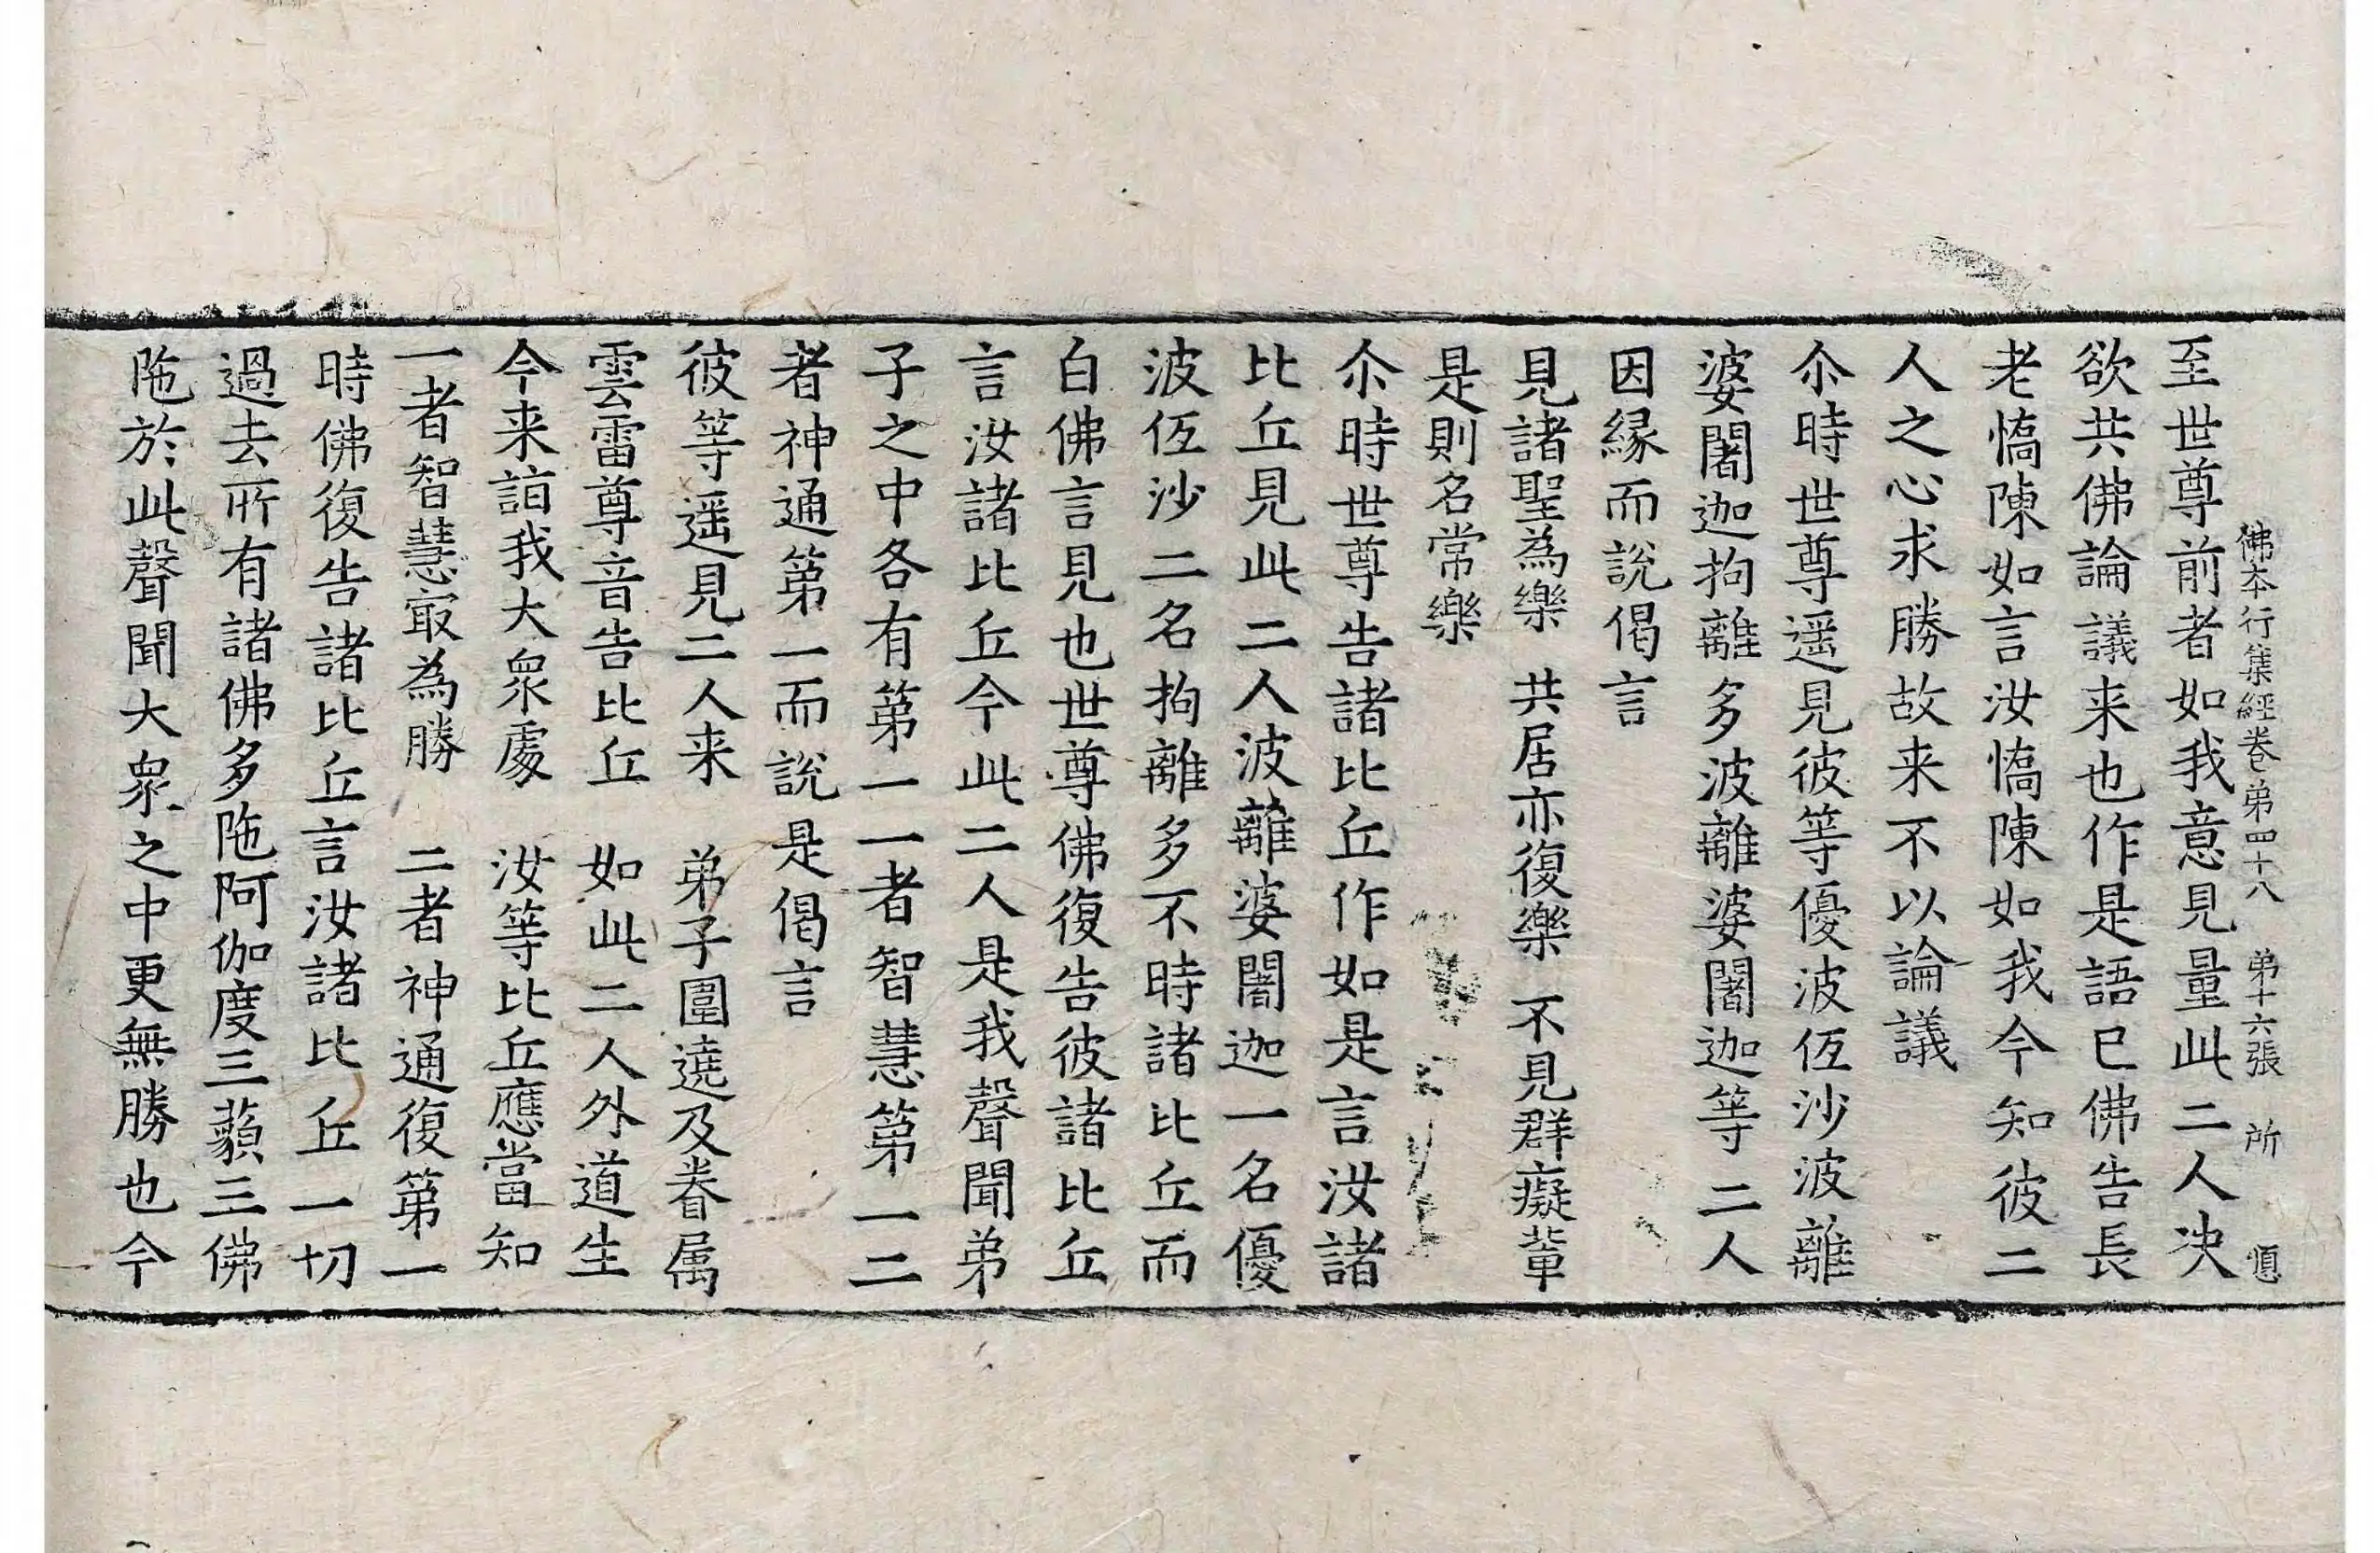 佛本行集經卷弟四十八 弟十六張 所
至世尊前者如我意見量此二人决
欲共佛論議来也作是語已佛告長
老憍陳如言汝憍陳如我今知彼二
人之心求勝故来不以論議
尒時世尊遥見彼等優波伍沙波離
婆闍迦拘離多波離婆闍迦等二人
因縁而說偈言
見諸聖為樂 共居亦復樂 不見群癡輩
是則名常樂
尒時世尊告諸比丘作如是言汝諸
比丘見此二人波離婆闍迦一名優
波伍沙二名拘離多不時諸比丘而
白佛言見也世尊佛復告彼諸比丘
言汝諸比丘今此二人是我聲聞弟
子之中各有第一一者智慧第一二
者神通第一而說是偈言
彼等遥見二人来 弟子圍遶及眷属
雲雷尊音告比丘 如此二人外道生
今来詣我大衆處 汝等比丘應當知
一者智慧㝡為勝 二者神通復第一
時佛復告諸比丘言汝諸比丘一切
過去所有諸佛多陁阿伽度三藐三佛
陁於此聲聞大衆之中更無勝也今